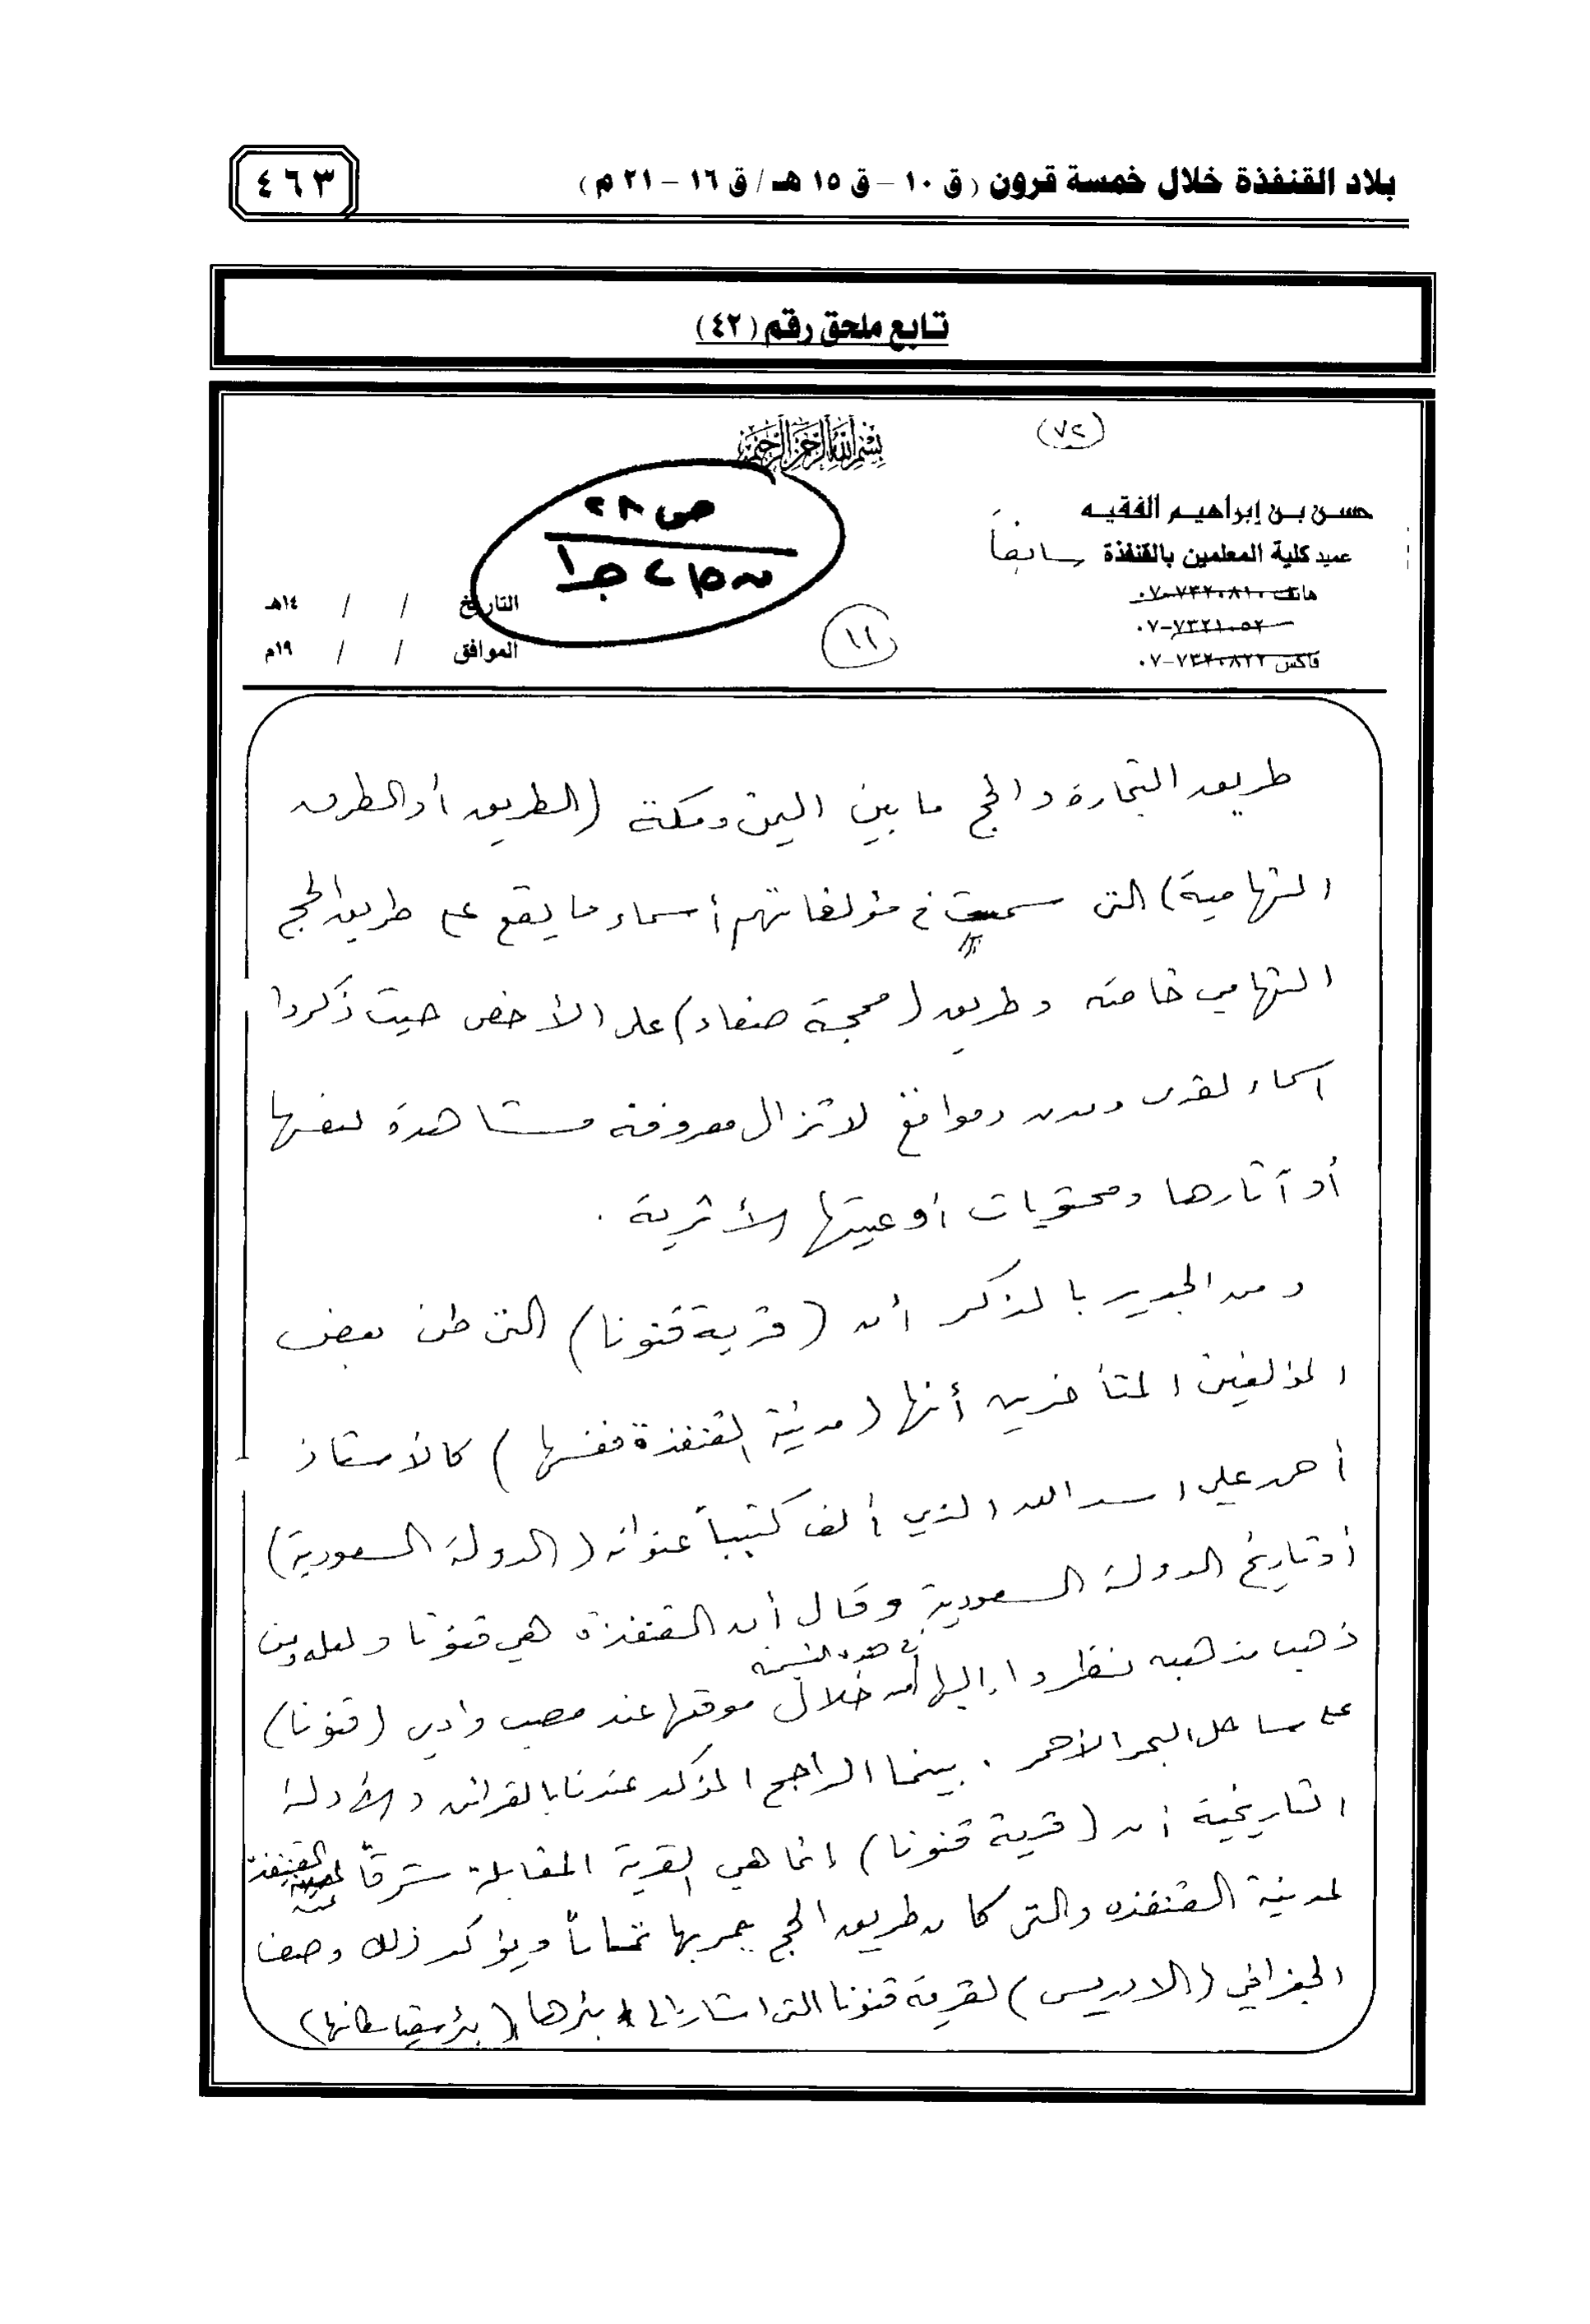 بلاد القنفذة خلال خمسة قرون (ق ١٠ – ق ١٥ هـ / ق ١٦ – ٢١ م)
٤٦٣
تابع ملحق رقم (٤٢)
(٧٢)
بسم الله الرحمن الرحيم
حسن بن إبراهيم الفقيه
عميد كلية المعلمين بالقنفذة سابقاً
هاتف ٧٣٢٠٨١٠-٠٧
٧٣٢١٠٥٢-٠٧
فاكس ٧٣٢٠٨٢٢-٠٧
ص ٢٨
التاريخ / / ١٤هـ
الموافق / / ١٩م
١١
طريق التجارة والحج ما بين اليمن ومكة (الطريق أو الطرق
التهامية) التي سميت في مؤلفاتهم أسماء ما يقع على طريق الحج
التهامي خاصة وطريق (محجة صنعاء) على الأخص حيث ذكروا
أسماء لقرى ومدن ومواقع لا تزال معروفة مشاهدة لنفسها
أو آثارها ومحتويات أوعيتها الأثرية .
ومن الجدير بالذكر أن (قرية قنونا) التي ظن بعض
المؤلفين المتأخرين أنها (مدينة القنفذة نفسها) كالأستاذ
أحمد علي أسد الله الذي ألف كتيباً عنوانه (الدولة السعودية)
أو تاريخ الدولة السعودية وقال أن القنفذة هي قنونا ولعله ومن
ذهب مذهبه نظروا إليها في هذه التسمية من خلال موقعها عند مصب وادي (قنونا)
على ساحل البحر الأحمر . بينما الراجح المؤكد عندنا بالقرائن والأدلة
التاريخية أن (قرية قنونا) إنما هي القرية المقابلة شرقاً
لمدينة القنفذة والتي كان طريق الحج يمر بها تماماً ويؤكد ذلك وصف
الجغرافي (الادريسي) لقرية قنونا التي اشار إلى بئرها (بئر يستقي سكانها)